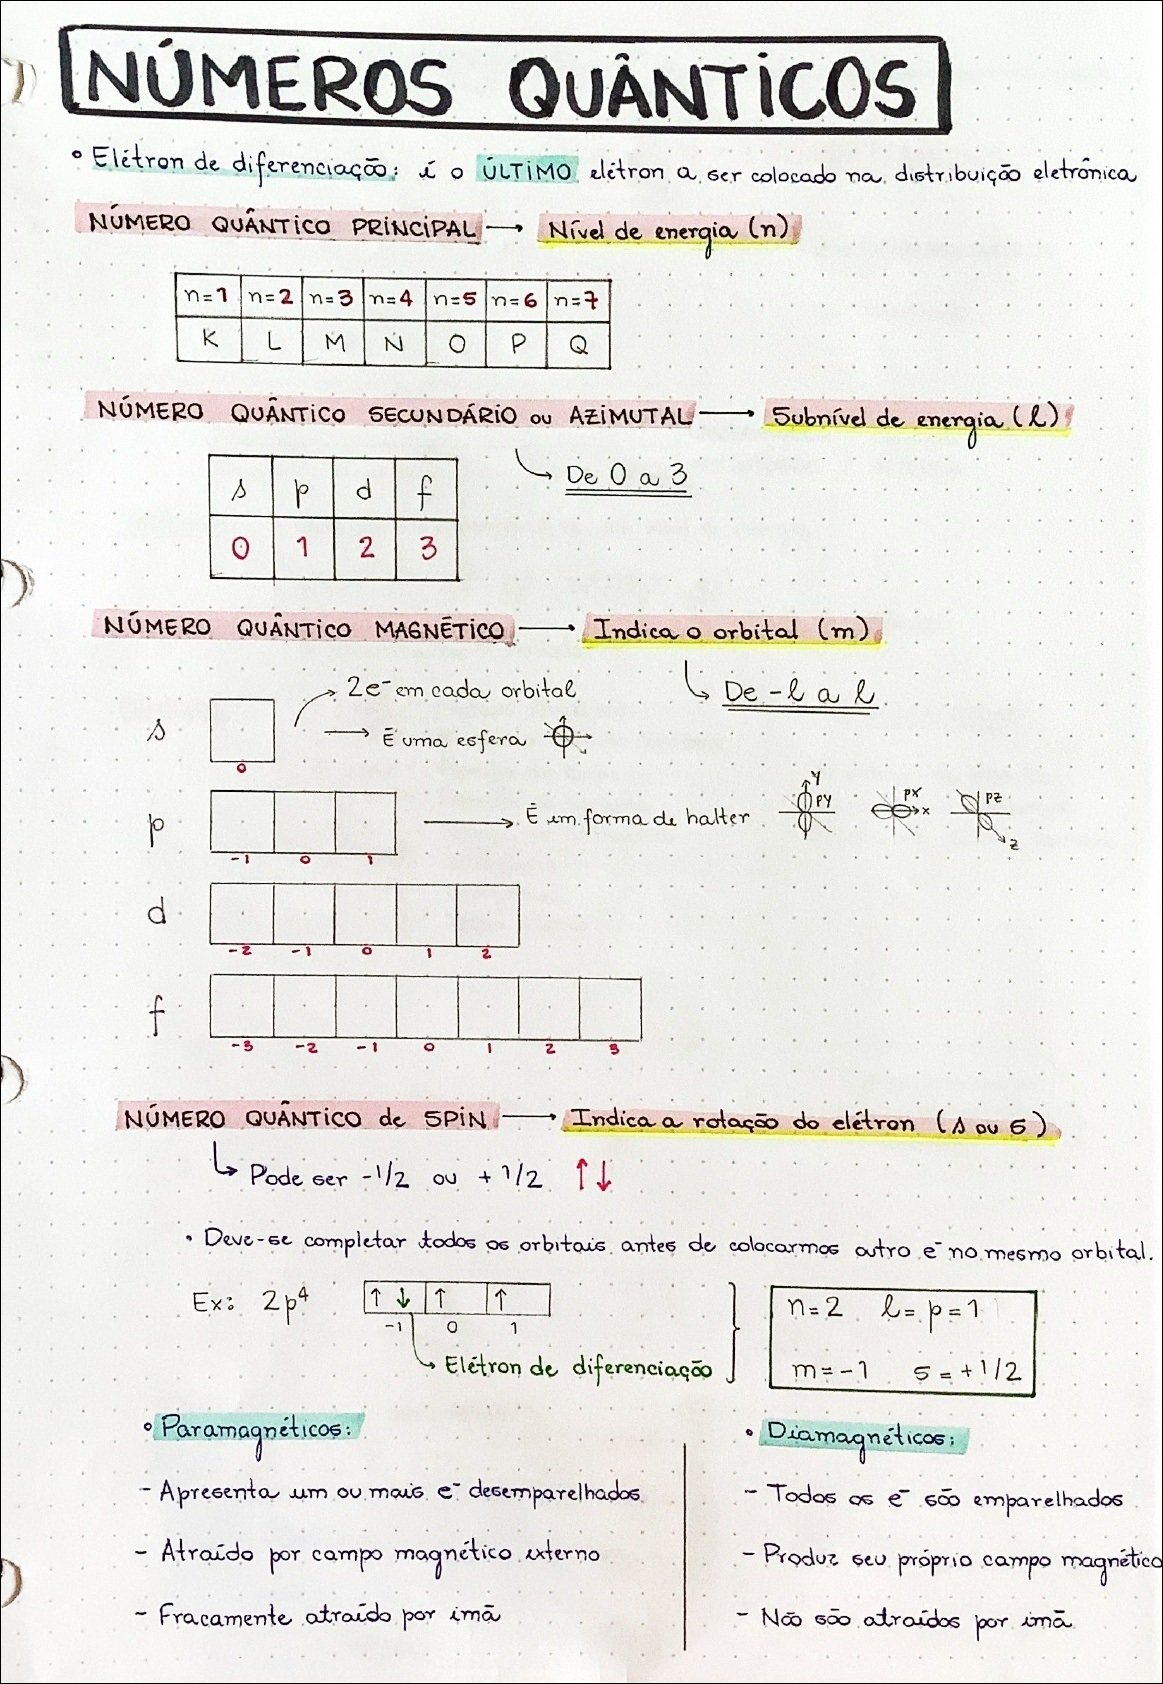 NÚMEROS QUÂNTICOS
• Elétron de diferenciação: é o ÚLTIMO elétron a ser colocado na distribuição eletrônica
NÚMERO QUÂNTICO PRINCIPAL → Nível de energia (n)
n=1 n=2 n=3 n=4 n=5 n=6 n=7
K L M N O P Q
NÚMERO QUÂNTICO SECUNDÁRIO ou AZIMUTAL → Subnível de energia (l)
↳ De 0 a 3
s p d f
0 1 2 3
NÚMERO QUÂNTICO MAGNÉTICO → Indica o orbital (m)
↳ De -l a l
→ 2e⁻ em cada orbital
s → É uma esfera
0
p → É em forma de halter
y PY PX x PZ z
-1 0 1
d
-2 -1 0 1 2
f
-3 -2 -1 0 1 2 3
NÚMERO QUÂNTICO de SPIN → Indica a rotação do elétron (s ou S)
↳ Pode ser -1/2 ou +1/2 ↑↓
• Deve-se completar todos os orbitais antes de colocarmos outro e⁻ no mesmo orbital.
Ex: 2p⁴ ↑↓ ↑ ↑
-1 0 1
↳ Elétron de diferenciação
n=2 l=p=1
m=-1 s=+1/2
• Paramagnéticos:
- Apresenta um ou mais e⁻ desemparelhados
- Atraído por campo magnético externo
- Fracamente atraído por imã
• Diamagnéticos:
- Todos os e⁻ são emparelhados
- Produz seu próprio campo magnético
- Não são atraídos por imã